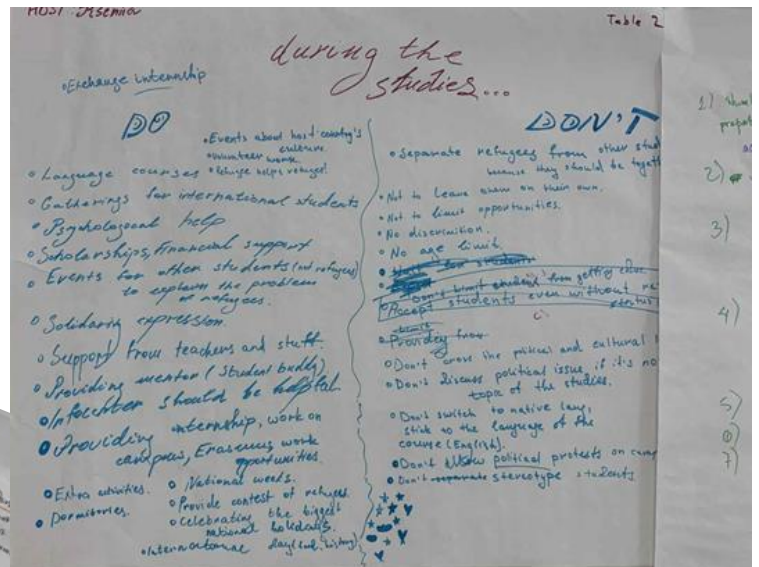 HOST: Ksenia
Table 2
during the
studies...
• Exchange internship
DO
• Events about host country's
culture
• Volunteer work
• Refugee helps refugee!
• Language courses
• Gatherings for international students
• Psychological help
• Scholarships, financial support
• Events for other students (not refugees)
to explain the problem
of refugees.
• Solidarity expression.
• Support from teachers and stuff.
• Providing mentor (Student buddy)
• should be helpful
• Providing internship, work on
campus, Erasmus work
opportunities.
• Extra activities.
• Dormitories.
• National weeks.
• Provide contest of refugees.
• Celebrating the biggest
national holidays.
• International day (food, history)
DON'T
• Separate refugees from other stud
because they should be togeth
• Not to leave them on their own.
• Not to limit opportunities.
• No age limit.
Don't limit student from getting
• Accept students even without re
status
• Providing from
• Don't cross the political and cultural
• Don't discuss political issue, if it's no
topic of the studies.
• Don't switch to native lang,
stick to the language of the
course (English).
• Don't political protests on camp
• Don't stereotype students
1)
2)
3)
4)
5)
6)
7)